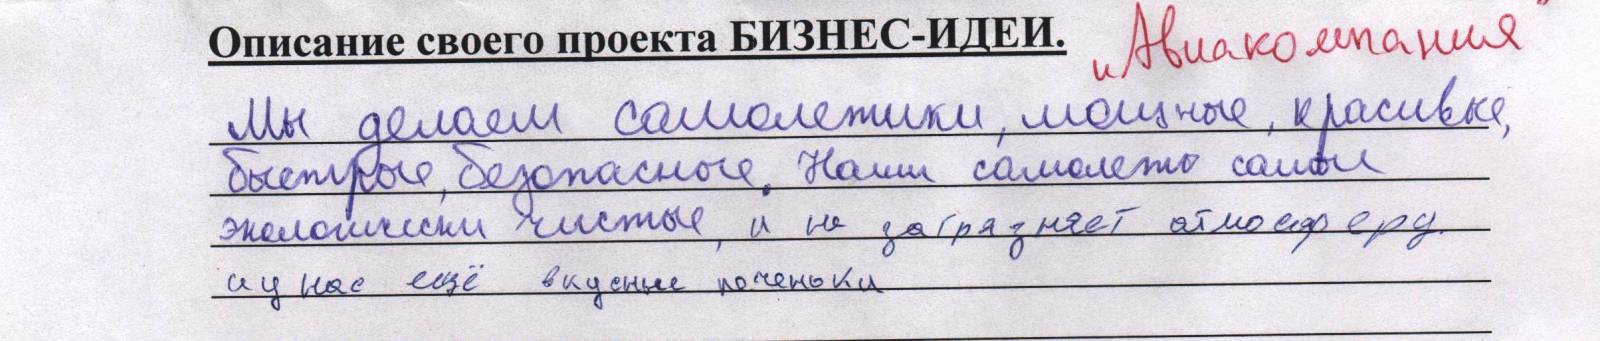 Описание своего проекта БИЗНЕС-ИДЕИ. „Авиакомпания"
Мы делаем самолетики, мощные, красивые,
быстрые, безопасные. Наши самолеты самые
экологически чистые, и не загрязняет атмосферу.
и у нас ещё вкусные поченьки